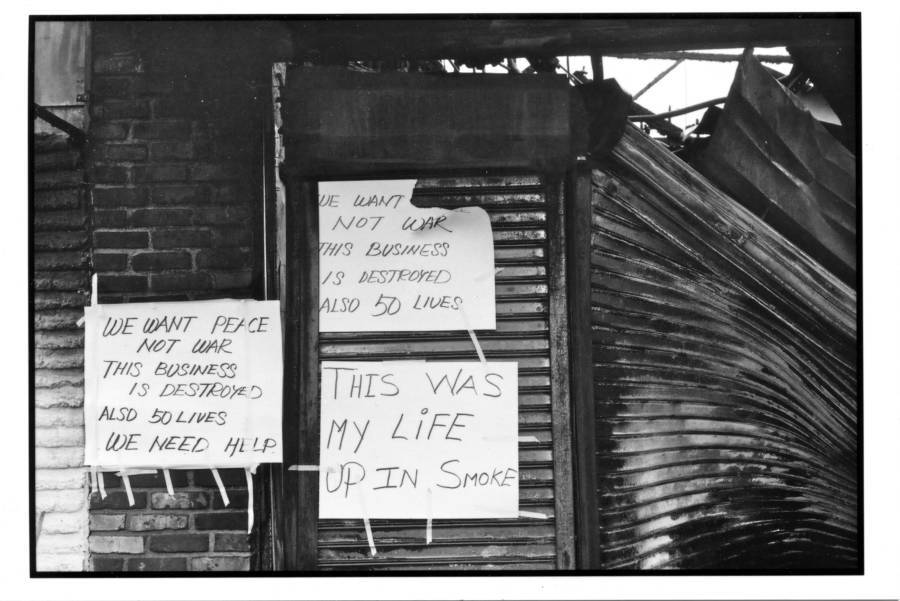 WE WANT PEACE
NOT WAR
THIS BUSINESS
IS DESTROYED
ALSO 50 LIVES
WE NEED HELP
WE WANT
NOT WAR
THIS BUSINESS
IS DESTROYED
ALSO 50 LIVES
THIS WAS
MY LIFE
UP IN SMOKE